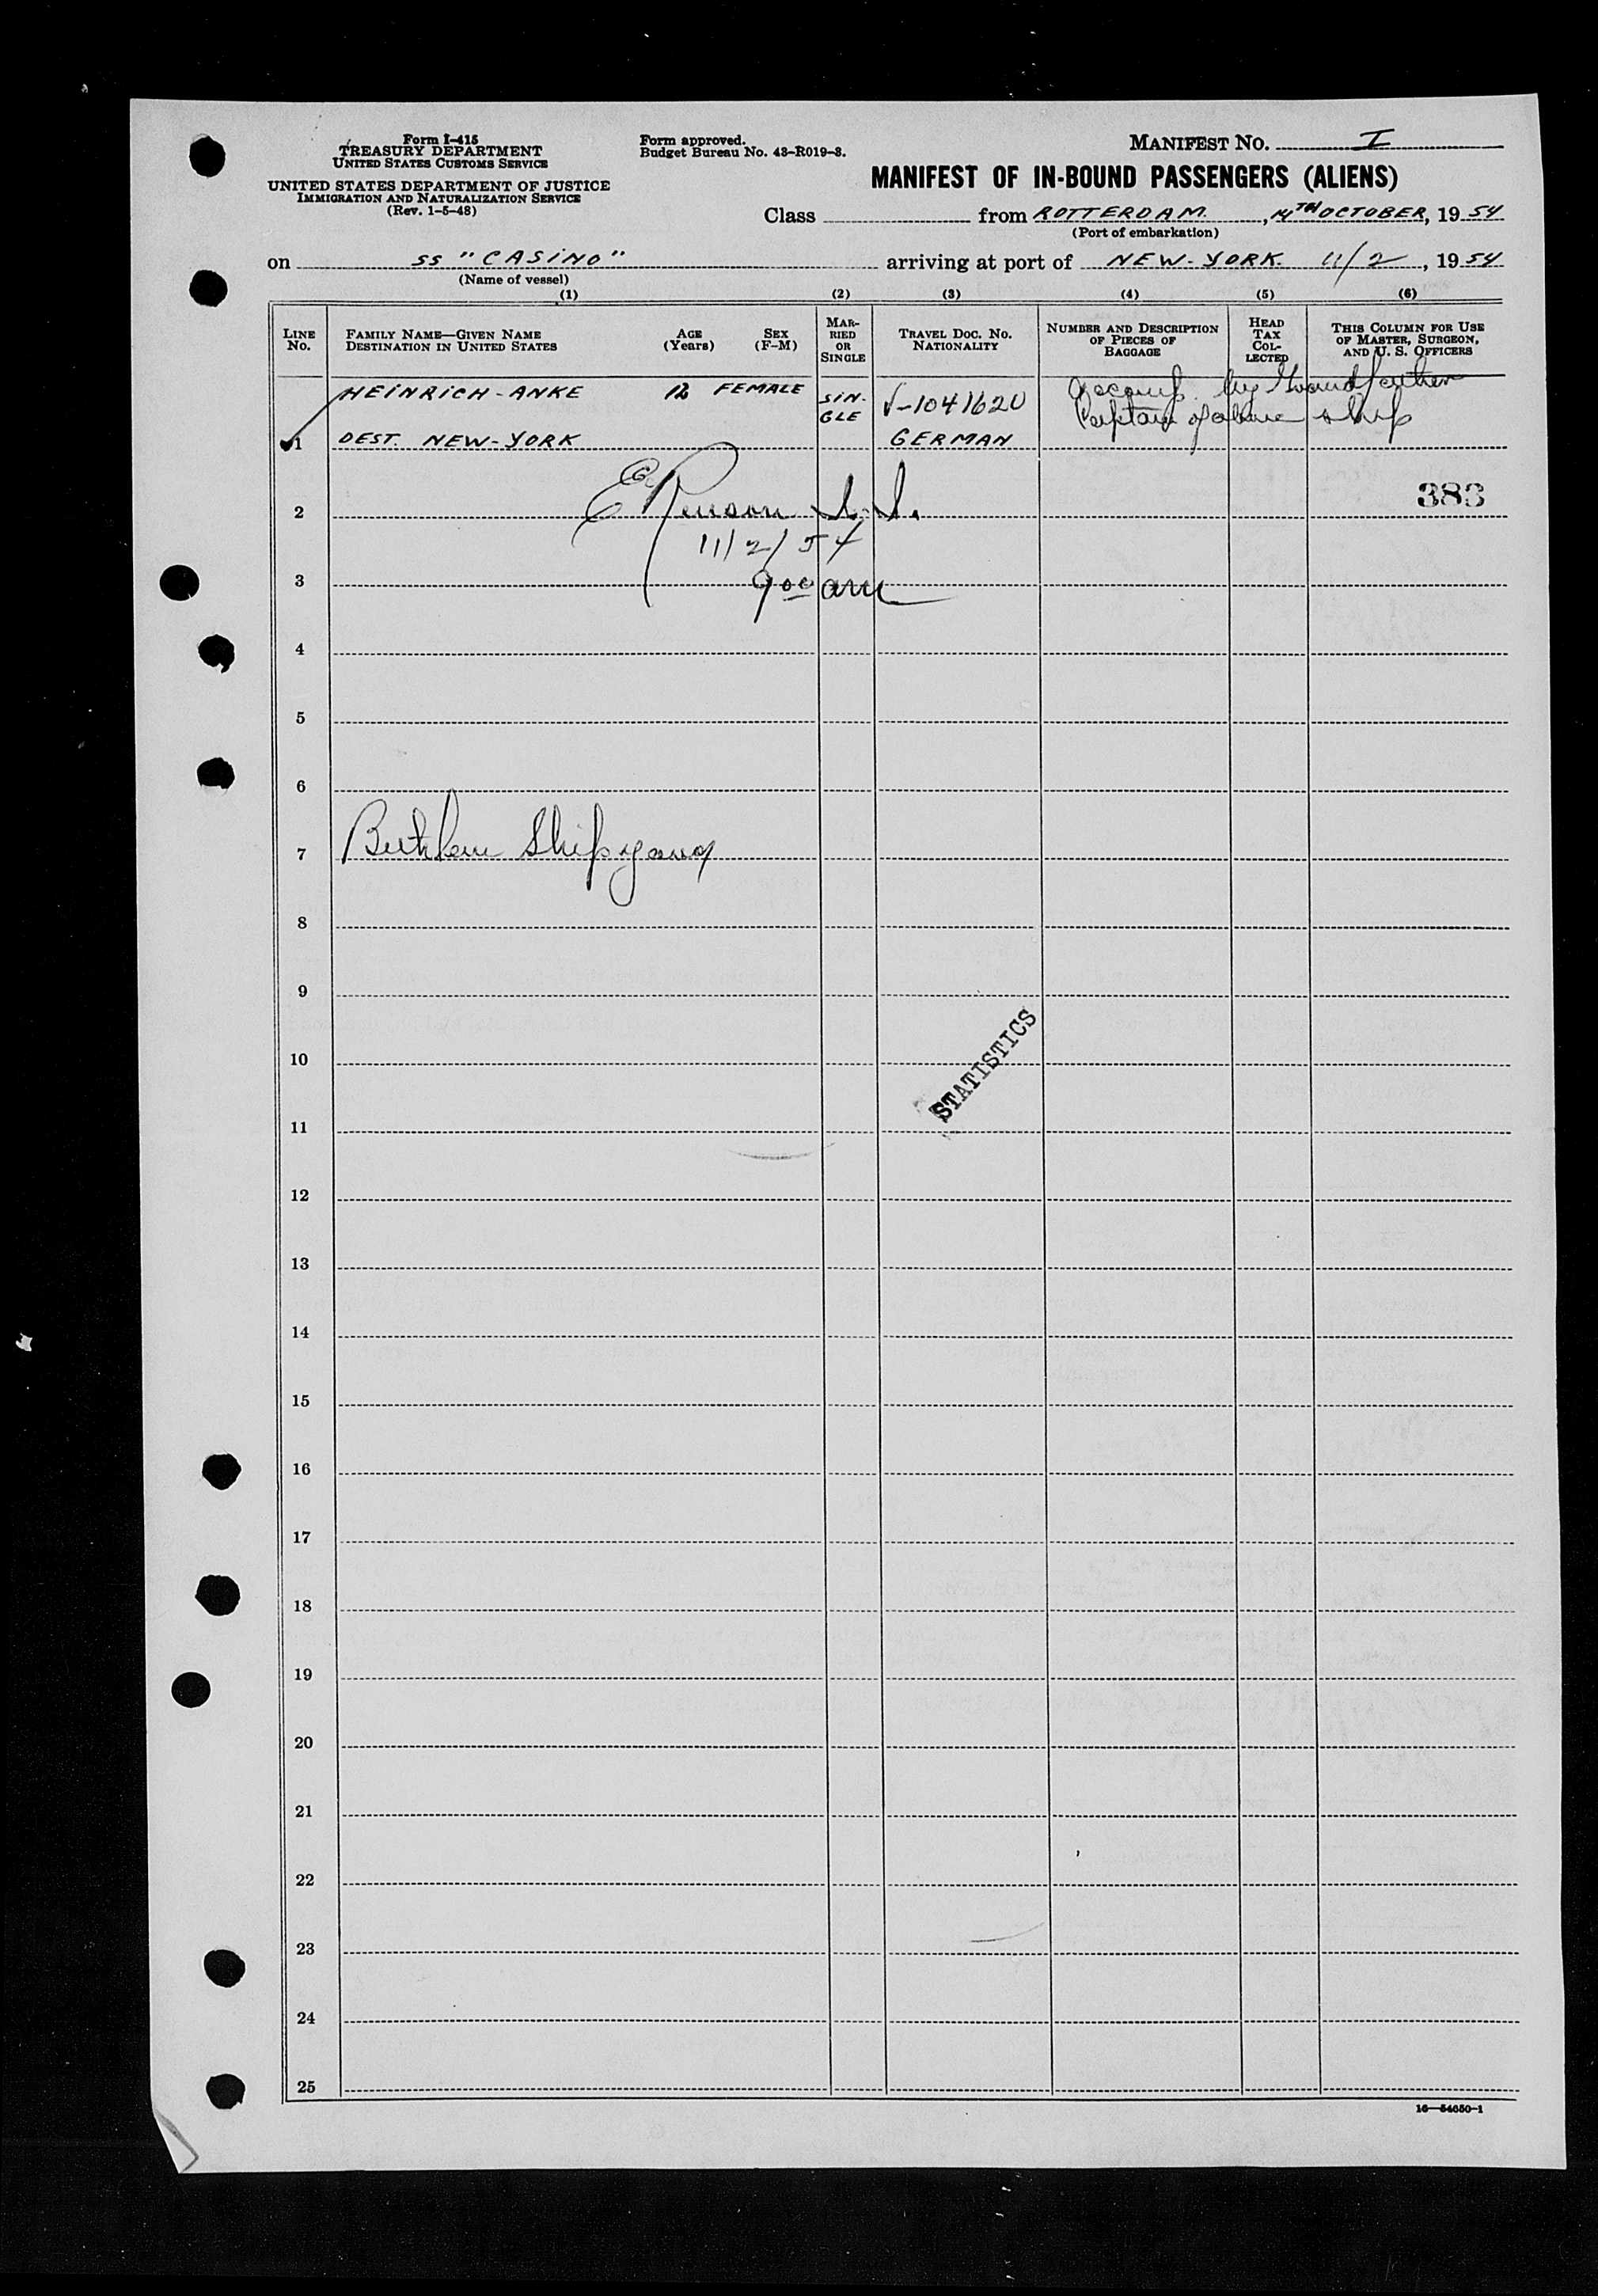 Form I-415
TREASURY DEPARTMENT
UNITED STATES CUSTOMS SERVICE
UNITED STATES DEPARTMENT OF JUSTICE
IMMIGRATION AND NATURALIZATION SERVICE
(Rev. 1-5-48)
Form approved.
Budget Bureau No. 43-R019-3.
MANIFEST NO. I
MANIFEST OF IN-BOUND PASSENGERS (ALIENS)
Class from ROTTERDAM, TH OCTOBER, 1954
(Port of embarkation)
on SS "CASINO" arriving at port of NEW-YORK. 11/2, 1954
(Name of vessel)
(1) (2) (3) (4) (5) (6)
LINE No. FAMILY NAME—GIVEN NAME DESTINATION IN UNITED STATES AGE (Years) SEX (F-M) MARRIED OR SINGLE TRAVEL DOC. NO. NATIONALITY NUMBER AND DESCRIPTION OF PIECES OF BAGGAGE HEAD TAX COLLECTED THIS COLUMN FOR USE OF MASTER, SURGEON, AND U. S. OFFICERS
HEINRICH-ANKE 12 FEMALE SIN-GLE V-1041620 Accomp. by Grandfather
Captain of above ship
1 DEST. NEW-YORK GERMAN
2 383
11/2/54
3 9 00 am
4
5
6
7 Shipyard
8
9
10
STATISTICS
11
12
13
14
15
16
17
18
19
20
21
22
23
24
25
16—54650-1